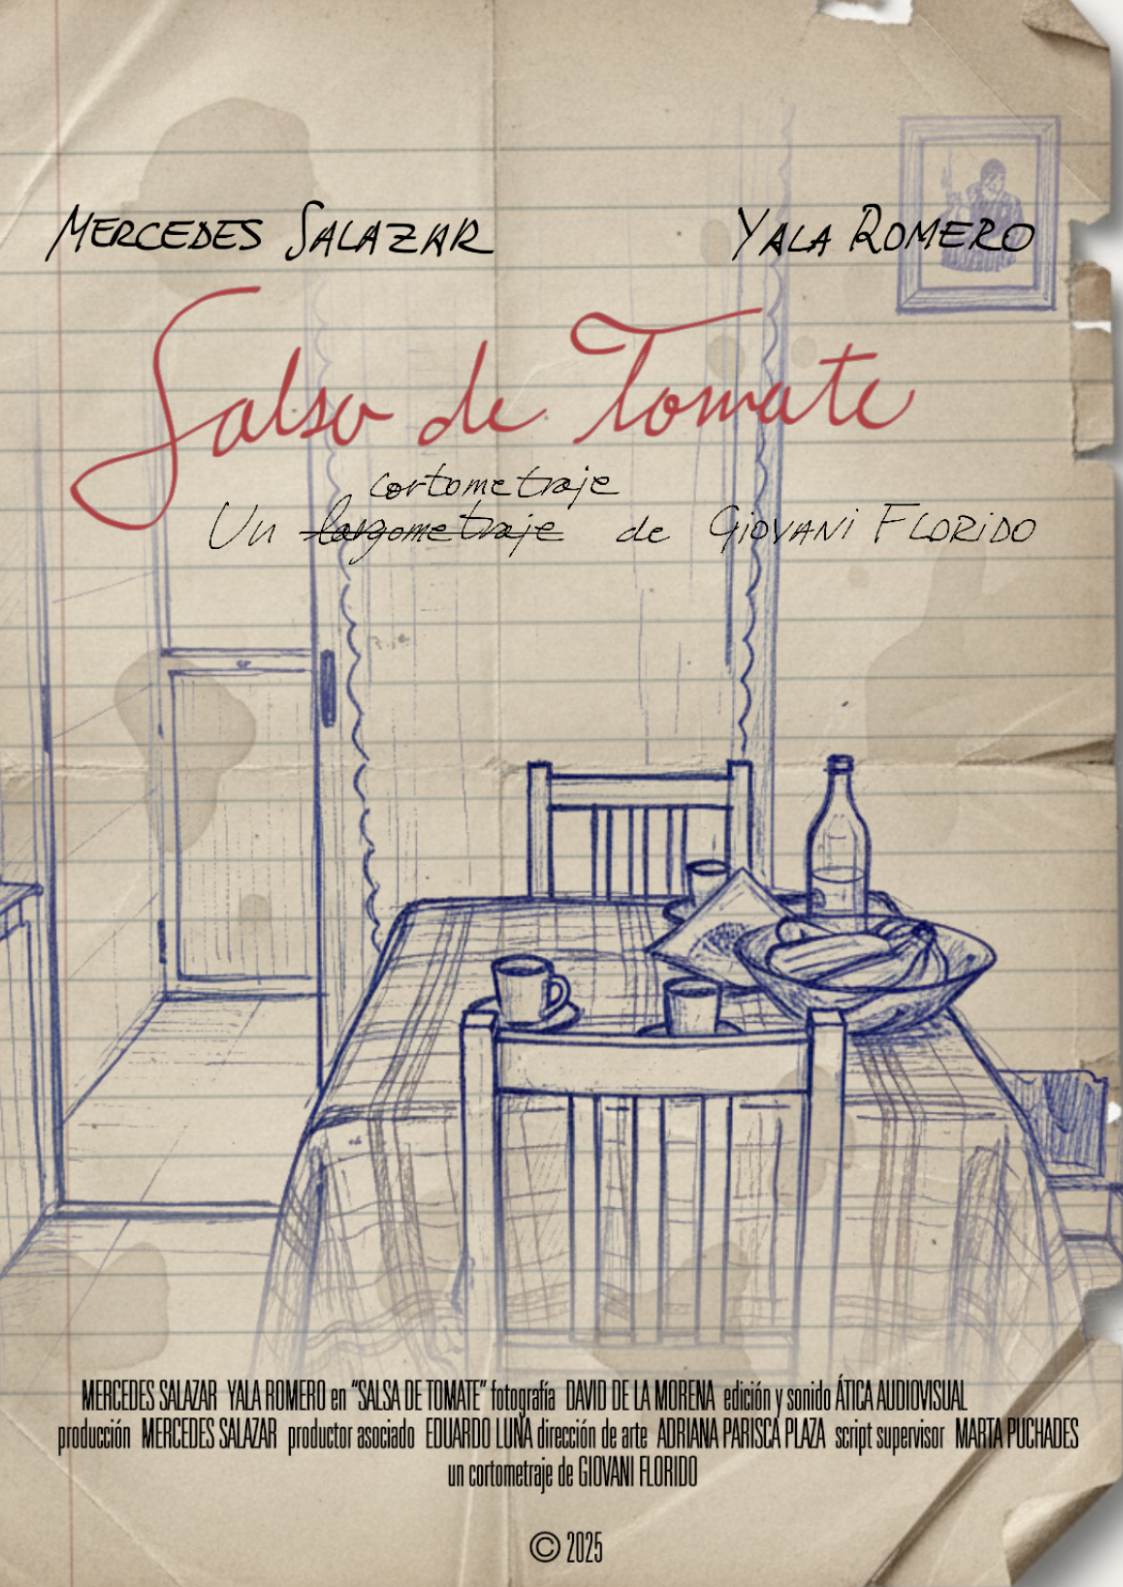 MERCEDES SALAZAR YALA ROMERO
Salsa de Tomate
cortometraje
Un largometraje de GIOVANI FLORIDO
MERCEDES SALAZAR YALA ROMERO en “SALSA DE TOMATE” fotografía DAVID DE LA MORENA edición y sonido ÁTICA AUDIOVISUAL
producción MERCEDES SALAZAR productor asociado EDUARDO LUNA dirección de arte ADRIANA PARISCA PLAZA script supervisor MARTA PUCHADES
un cortometraje de GIOVANI FLORIDO
© 2025